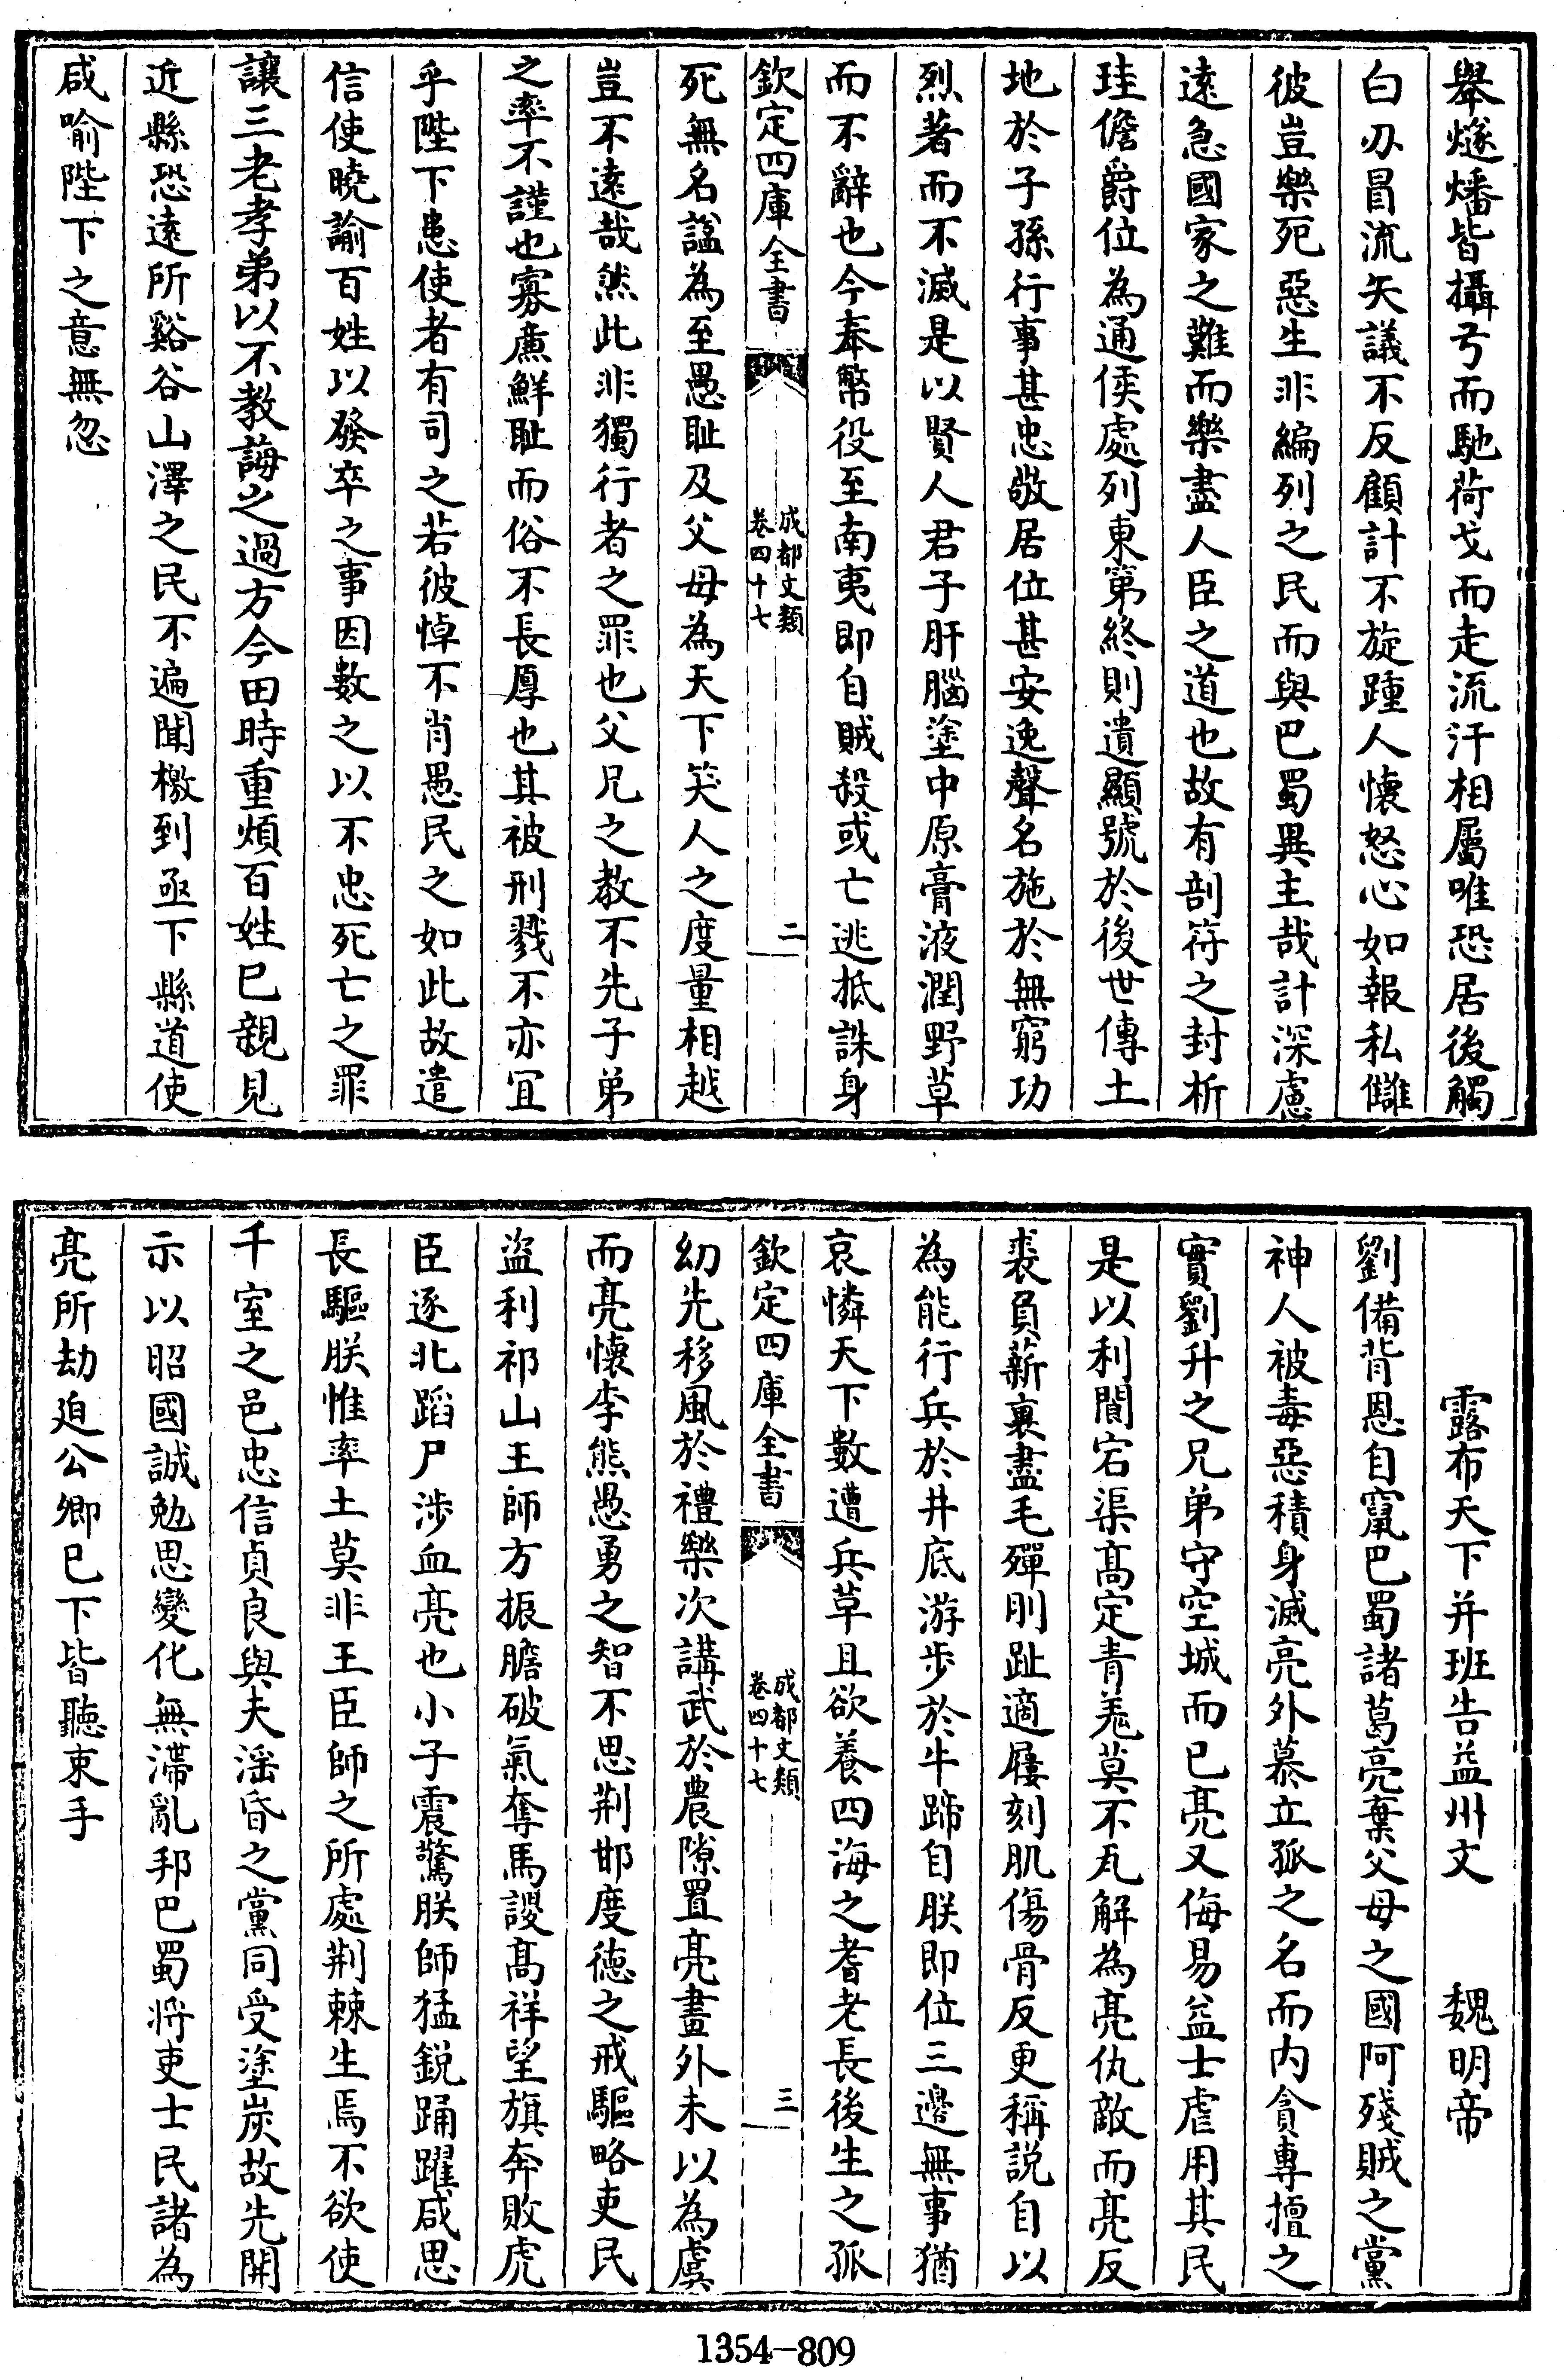 舉燧燔皆攝弓而馳荷戈而走流汗相屬唯恐居後觸
白刃冒流矢議不反顧計不旋踵人懷怒心如報私讎
彼豈樂死惡生非編列之民而與巴蜀異主哉計深慮
遠急國家之難而樂盡人臣之道也故有剖符之封析
珪儋爵位為通侯處列東第終則遺顯號於後世傳土
地於子孫行事甚忠敬居位甚安逸聲名施於無窮功
烈著而不滅是以賢人君子肝腦塗中原膏液潤野草
而不辭也今奉幣役至南夷即自賊殺或亡逃抵誅身
欽定四庫全書
成都文類
卷四十七
二
死無名諡為至愚耻及父母為天下笑人之度量相越
豈不遠哉然此非獨行者之罪也父兄之教不先子弟
之率不謹也寡廉鮮耻而俗不長厚也其被刑戮不亦宜
乎陛下患使者有司之若彼悼不肖愚民之如此故遣
信使曉諭百姓以發卒之事因數之以不忠死亡之罪
讓三老孝弟以不教誨之過方今田時重煩百姓已親見
近縣恐遠所谿谷山澤之民不遍聞檄到亟下縣道使
咸喻陛下之意無忽
露布天下并班告益州文 魏明帝
劉備背恩自竄巴蜀諸葛亮棄父母之國阿殘賊之黨
神人被毒惡積身滅亮外慕立孤之名而内貪專擅之
實劉升之兄弟守空城而已亮又侮易益士虐用其民
是以利閬宕渠髙定青羌莫不瓦解為亮仇敵而亮反
裘負薪裏盡毛殫刖趾適屨刻肌傷骨反更稱説自以
為能行兵於井底游步於牛蹄自朕即位三邊無事猶
哀憐天下數遭兵革且欲養四海之耆老長後生之孤
欽定四庫全書
成都文類
卷四十七
三
幼先移風於禮樂次講武於農隙置亮畫外未以為虞
而亮懷李熊愚勇之智不思荆邯度徳之戒驅略吏民
盗利祁山王師方振膽破氣奪馬謖髙祥望旗奔敗虎
臣逐北蹈尸涉血亮也小子震驚朕師猛鋭踊躍咸思
長驅朕惟率土莫非王臣師之所處荆棘生焉不欲使
千室之邑忠信貞良與夫淫昏之黨同受塗炭故先開
示以昭國誠勉思變化無滯亂邦巴蜀将吏士民諸為
亮所劫迫公卿已下皆聽束手
1354—809